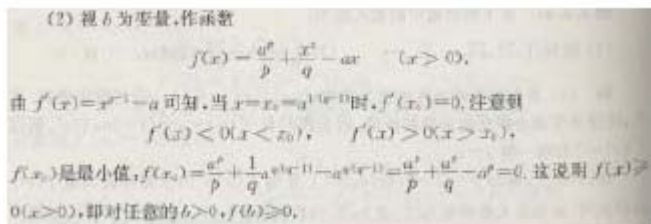 (2) 视 b 为变量,作函数
f(x) = a^p/p + x^q/q − ax (x>0).
由 f′(x)=x^{q−1}−a 可知,当 x=x₀=a^{1/(q−1)}时, f′(x₀)=0. 注意到
f′(x)<0(x<x₀), f′(x)>0(x>x₀),
f(x₀)是最小值, f(x₀)=a^p/p+1/q a^{q/(q−1)}−a^{q/(q−1)}=a^p/p+a^p/q−a^p=0. 这说明 f(x)⩾
0(x>0),即对任意的b>0, f(b)⩾0.